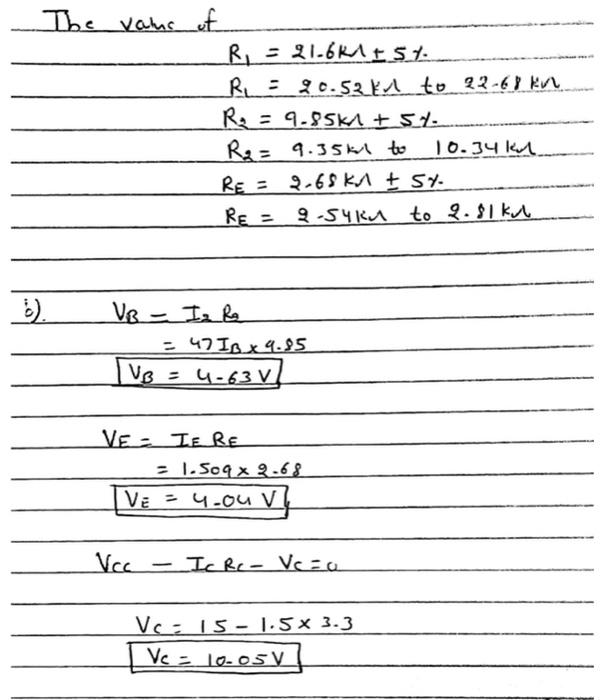 The value of
R₁ = 21.6kΩ ± 5%
R₁ = 20.52kΩ to 22.68kΩ
R₂ = 9.85kΩ ± 5%
R₂ = 9.35kΩ to 10.34kΩ
RE = 2.68kΩ ± 5%
RE = 2.54kΩ to 2.81kΩ
b).
VB = I₂ R₂
= 47IB x 9.85
VB = 4.63V
VE = IE RE
= 1.509 x 2.68
VE = 4.04 V
Vcc - Ic Rc - Vc = 0
Vc = 15 - 1.5 x 3.3
Vc = 10.05V